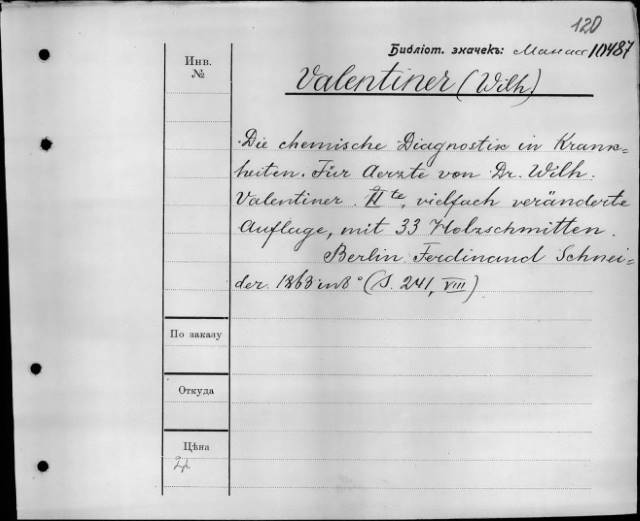 120
Библіот. значекъ: Манас 10487
Инв. №
Valentiner (Wilh.)
Die chemische Diagnostik in Krank-
heiten. Für Aerzte von Dr. Wilh.
Valentiner. IIte, vielfach veränderte
Auflage, mit 33 Holzschnitten.
Berlin. Ferdinand Schnei-
der. 1863 in 8° (S. 241, VIII)
По заказу
Откуда
Цѣна